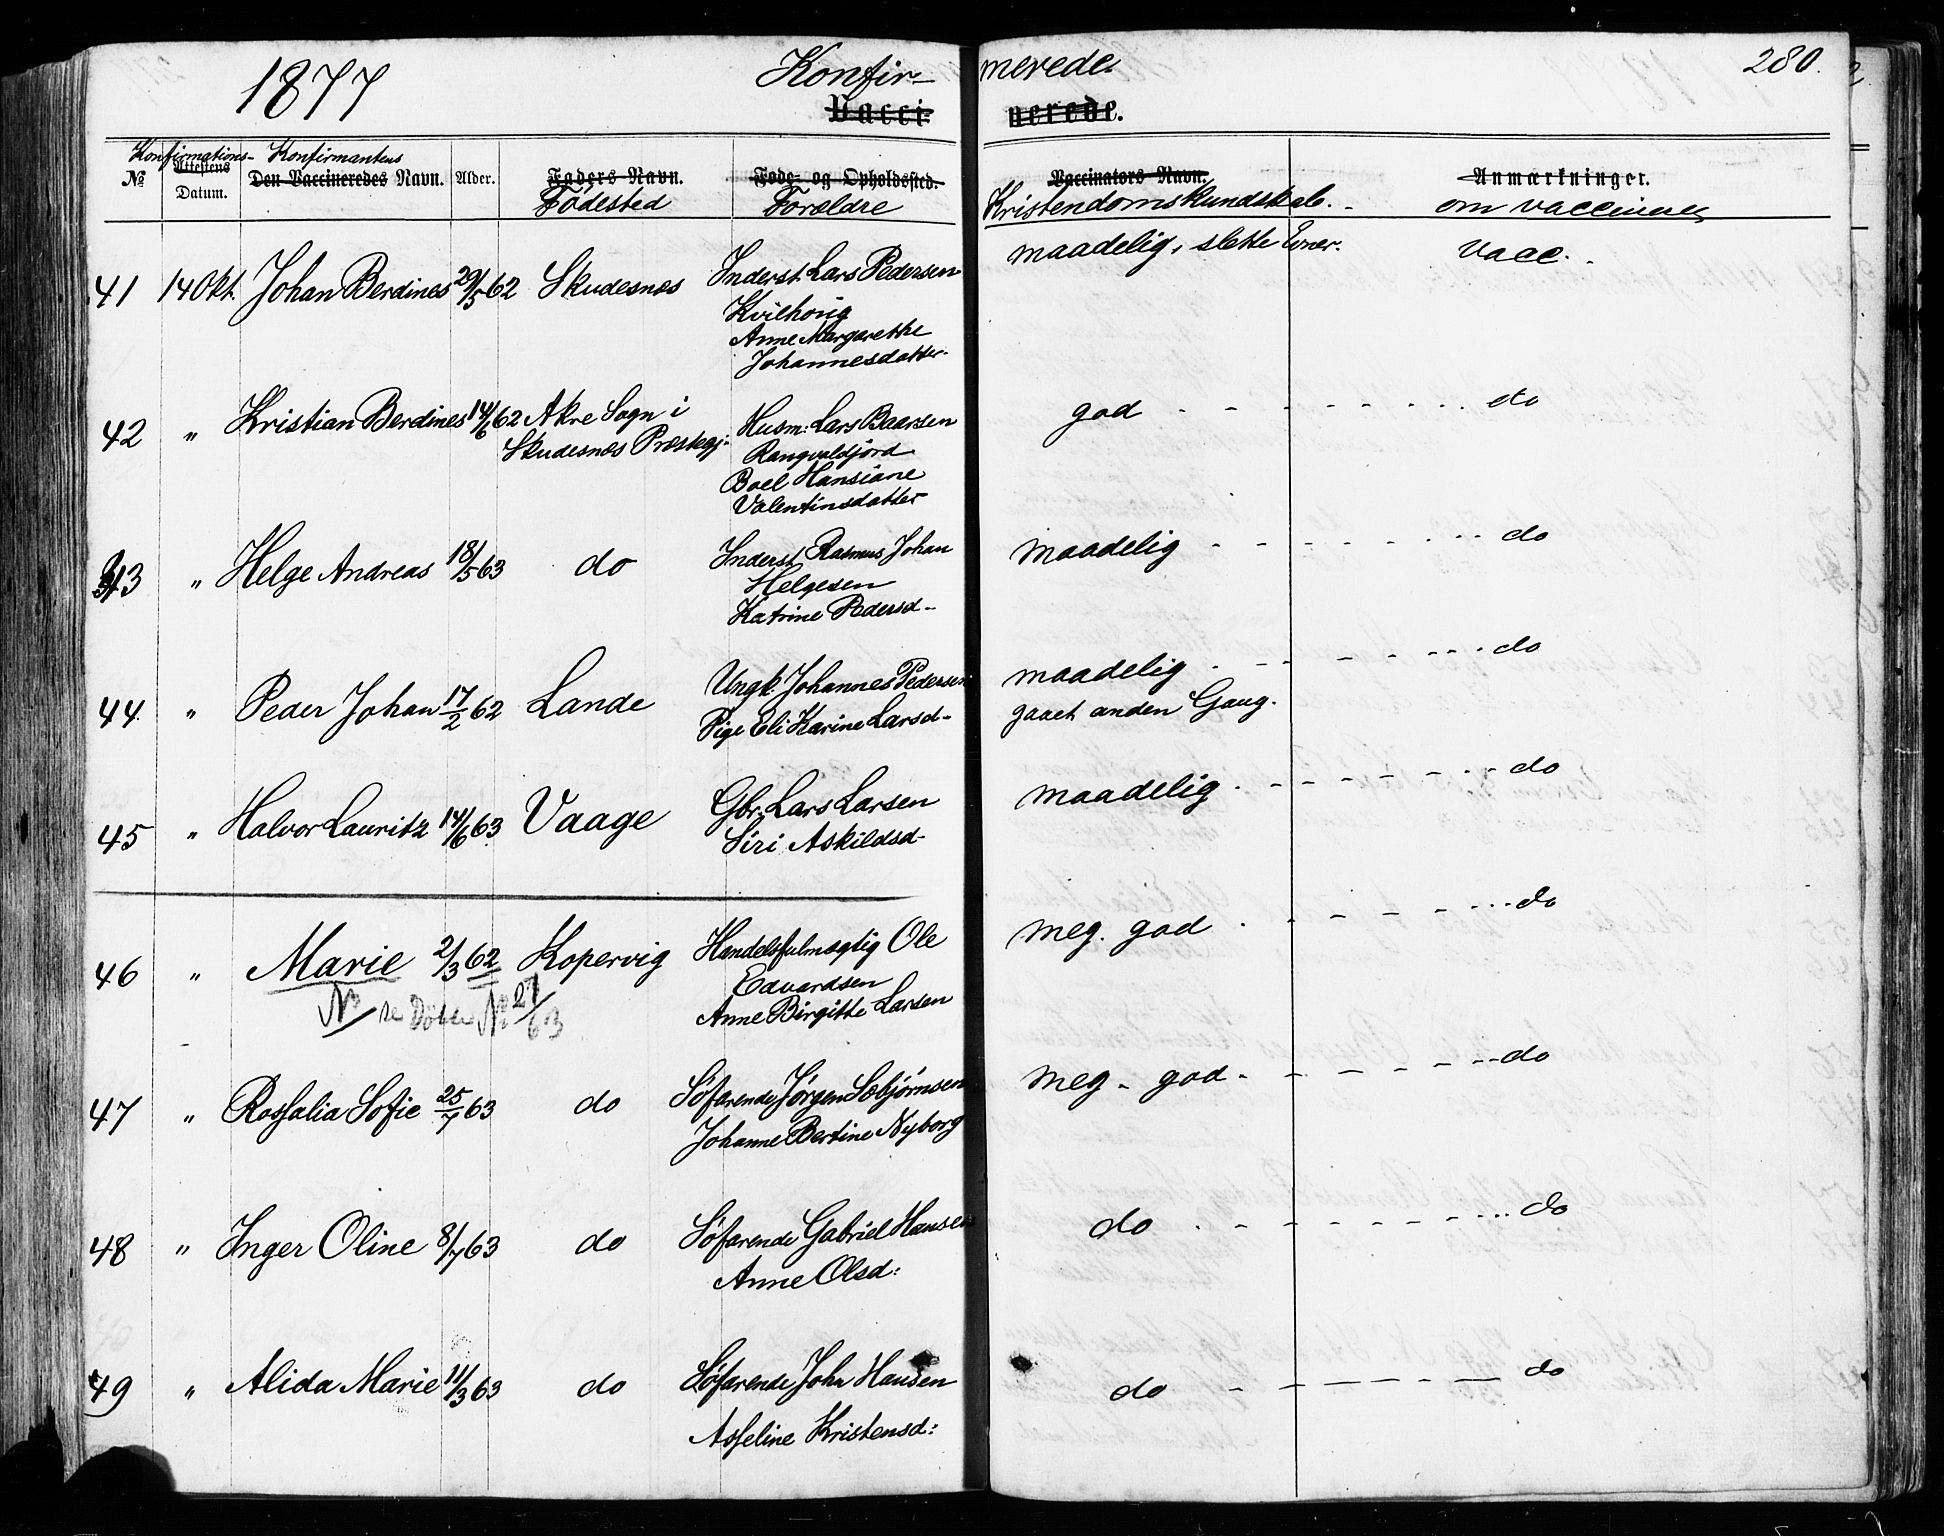 1877 Konfirmerede. 280.
Vaccinerede.
Konfirmations- Konfirmantens
No Attestens Datum. Den Vaccineredes Navn. Alder. Faders Navn. Føde- og Opholdssted. Vaccinators Navn. Anmærkninger.
Fødested Forældre Kristendomskundskab. om vaccinered
41 14 Okt. Johan Berdines 29/5 62 Skudesnæs Inderst. Lars Pedersen maadelig, slette Evner. vacc.
Kvilhoug
Anne Margarethe
Johannesdatter
42 " Kristian Berdines 14/6 62 Akre Sogn i Husm: Lars Baarsen god do
Skudesnæs Præstegj. Rangvaldjord
Boel Hansiane
Valentinsdatter
43 " Helge Andreas 18/5 63 do Inderst. Rasmus Johan maadelig do
Helgesen
Katrine Pedersd
44 " Peder Johan 17/2 62 Lande Ungk. Johannes Pedersen maadelig do
Pige Eli Karine Larsd gaaet anden Gang.
45 " Halvor Lauritz 14/6 63 Vaage Gbr. Lars Larsen maadelig do
Siri Askildsd
46 " Marie 2/3 62 Kopervig Handelsfulmægtig Ole meg. god do
Edvardsen
No se Døbte No 27/63 Anne Birgitte Larsen
47 " Rossalia Sofie 25/7 63 do Søfarende Jørgen Sæbjørnsen meg. god do
Johanne Bertine Nyborg
48 " Inger Oline 8/7 63 do Søfarende Gabriel Hansen do do
Anne Olsd:
49 " Alida Marie 11/3 63 do Søfarende John Hansen do do
Asseline Kristensd: